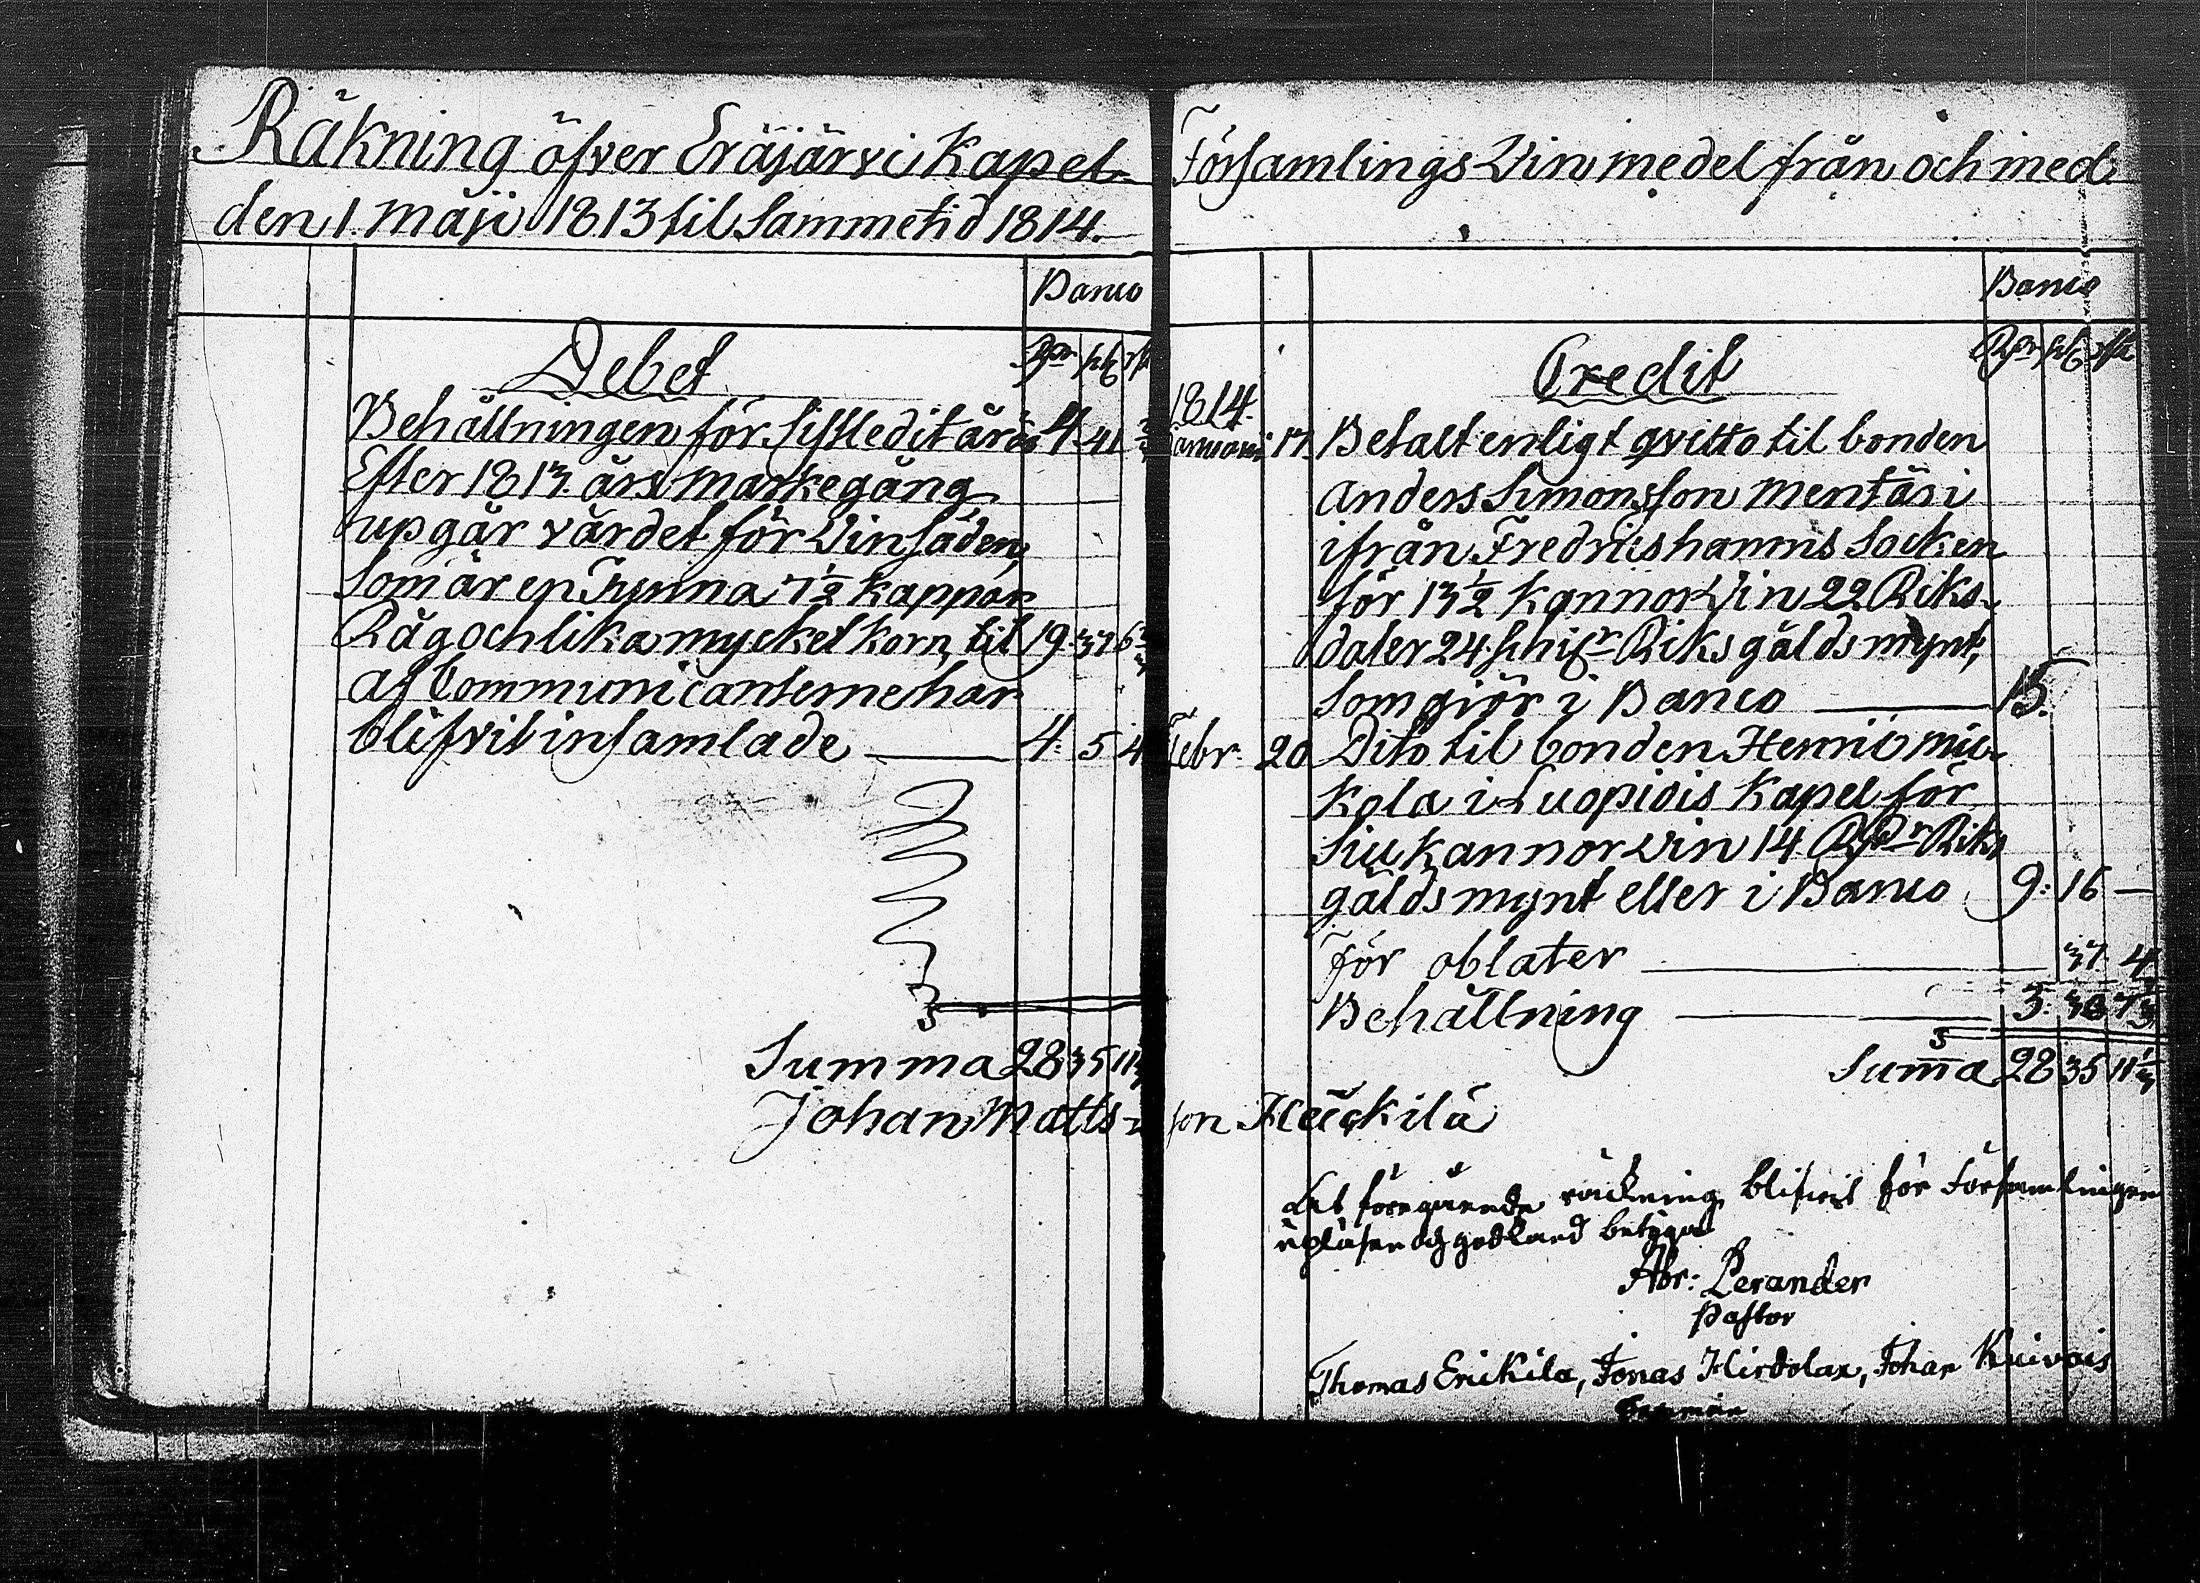 Räkning öfver Eräjärvi Kapel-
den 1. Maji 1813 til Samme tid 1814.
Banco
Debet
Rdr sk rst
Behållningen för sistledit år är 4. 41
Efter 1813 års Markegång
upgår värdet för Vinsäden,
Som är en Tunna 7½ kappar
Råg och lika mycket Korn, til 19. 37 6
Af Communicanterne har
blifvit insamlade 4. 5 4
Summa 28 35 11⅓
Johan Matts-
Församlings Vin medel från och med
Banco
Credit
Rdr sk rst
1814.
Januarii 17. Betalt enligt qvitto til bonden
Anders Simonsson Mentäri
ifrån Fredrichshamns Socken
för 13½ kannor Vin 22 Riks-
daler 24 schil:r Riksgälds mynt,
Som giör i Banco 15.
Febr. 20 Dito til bonden Henric Mic-
kola i Luopiois Kapel för
Siu kannor Vin 14 Rdr Riks
gälds mynt eller i Banco 9: 16 —
För oblater 37. 4
Behållning 3. 30 7⅓
Summa 28 35 11⅓
son Heickilä
At föregående räckning blifvit för Församlingen
upläsen och godkänd betygar
Abr: Perander
Pastor
Thomas Erikila, Jonas Hirdolax, Johan Kuivais